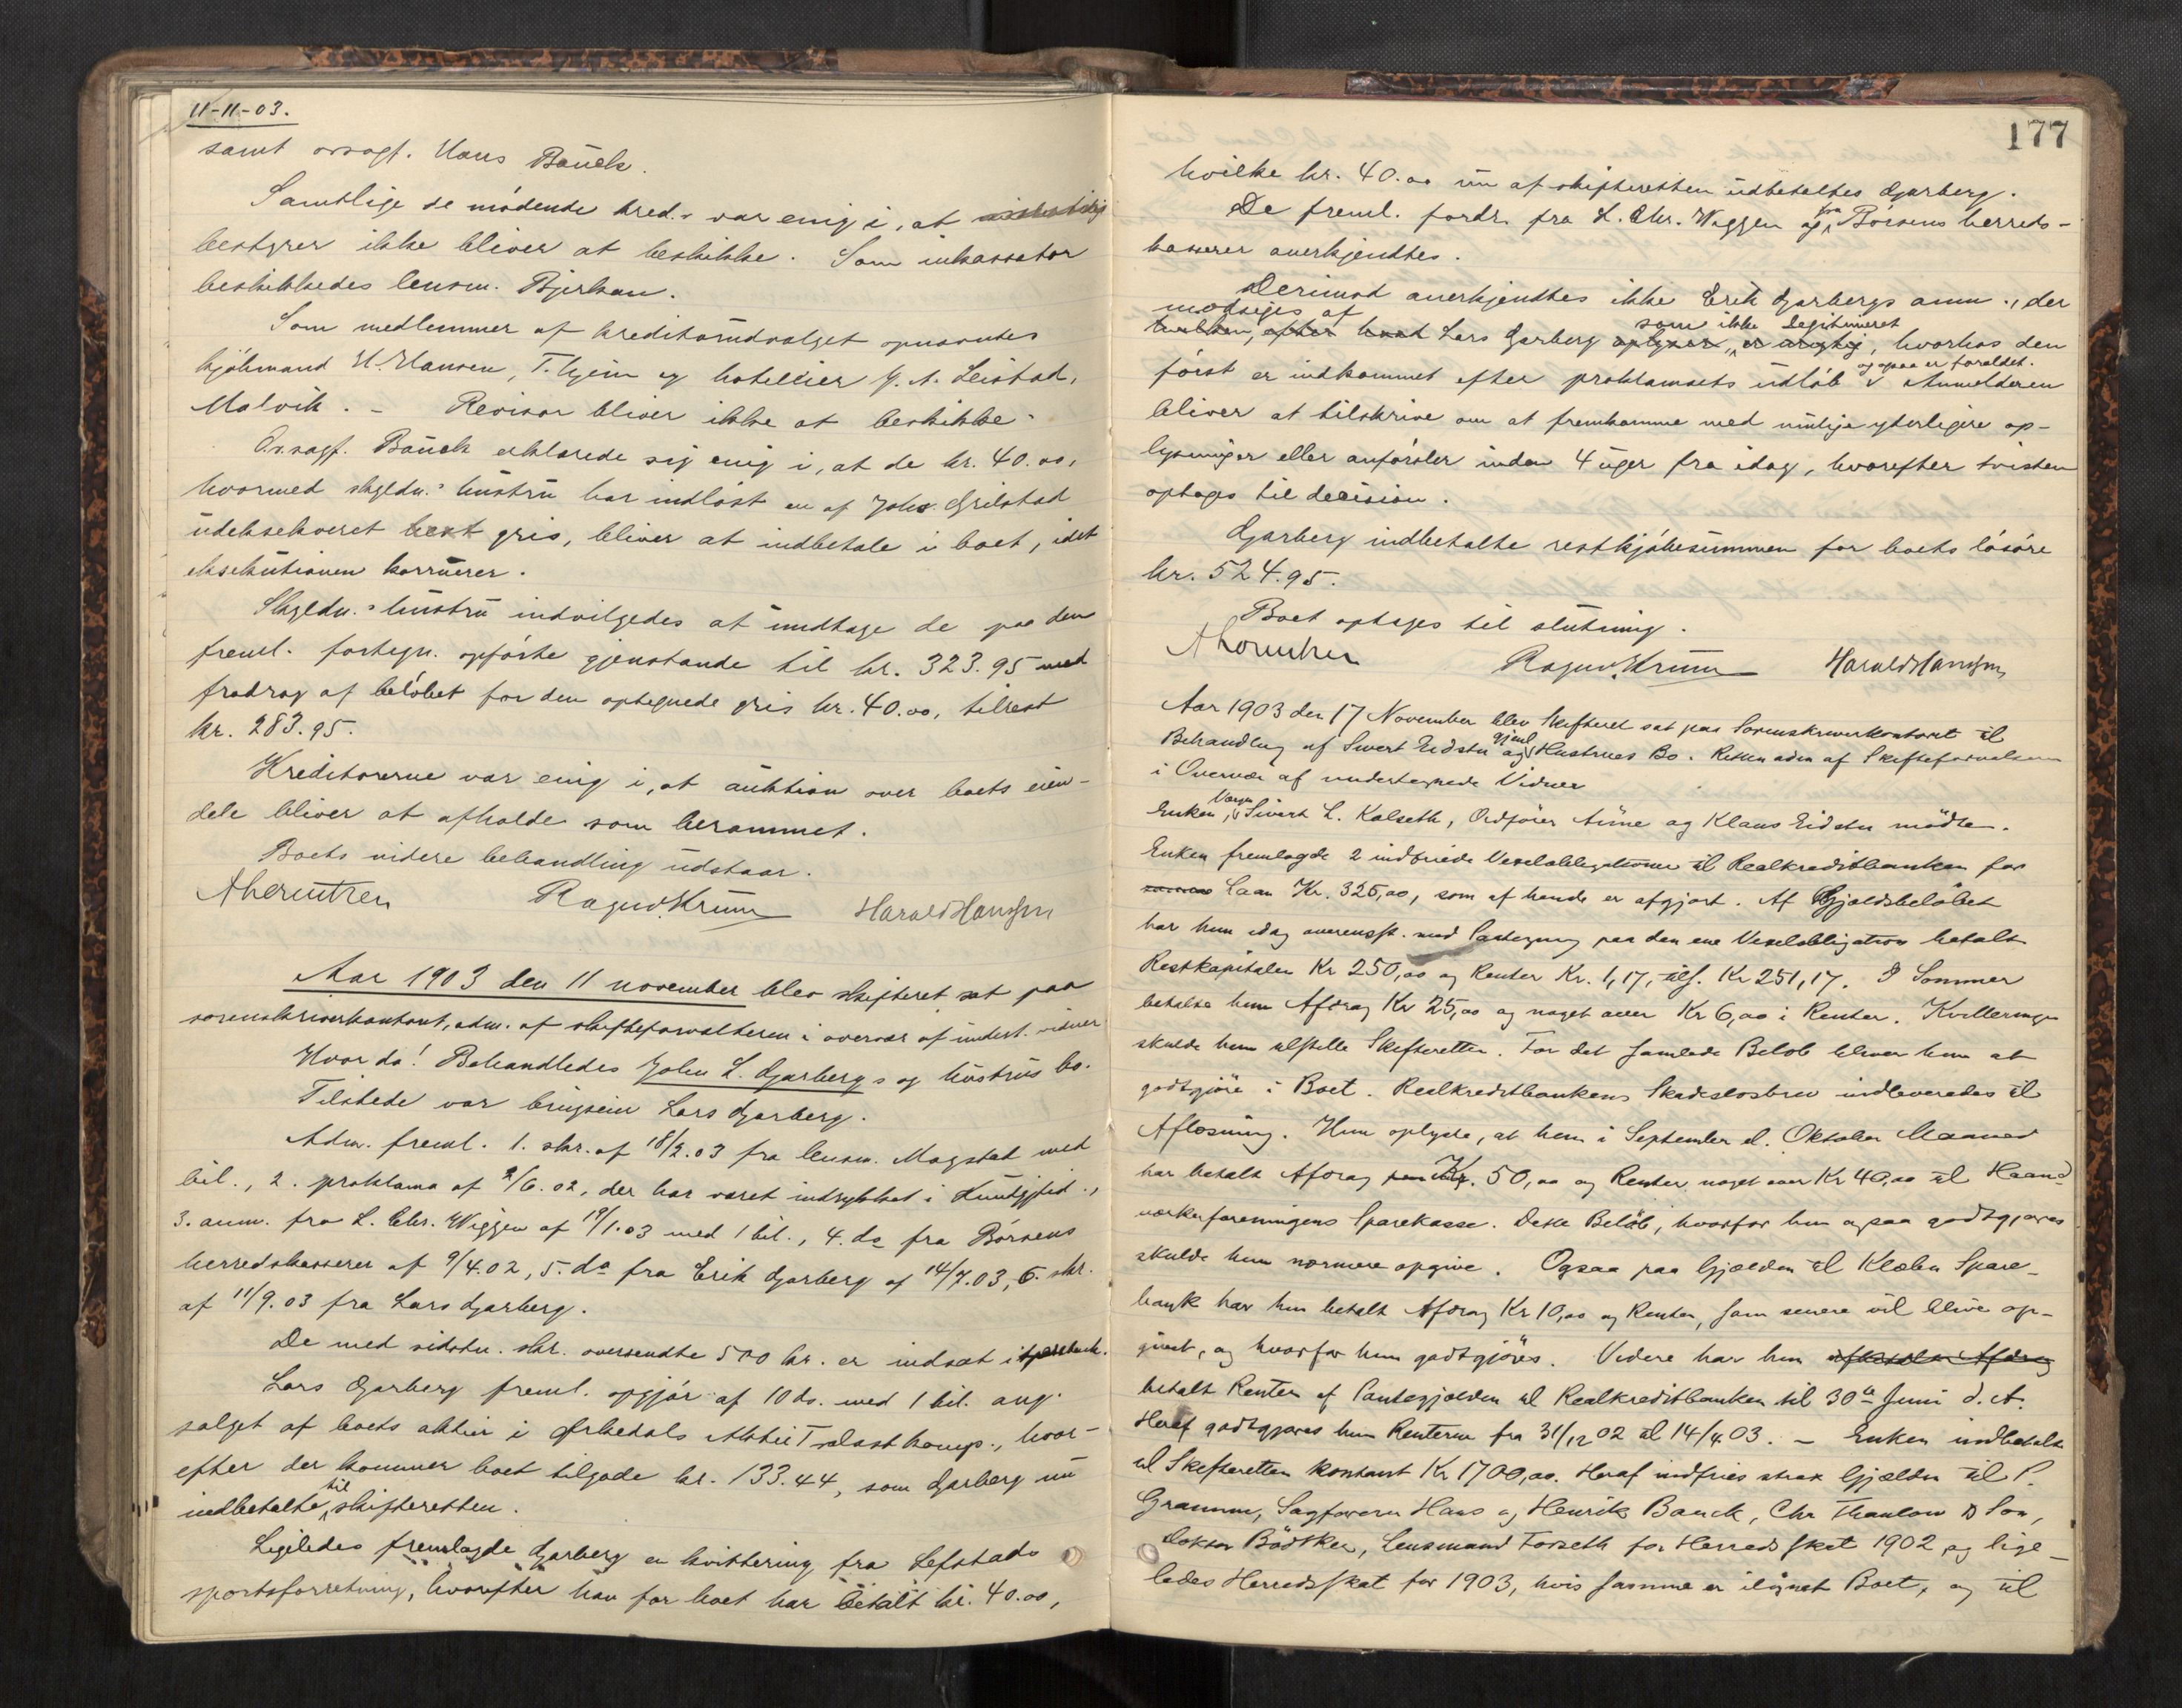 11-11-03.
samt orsagf. Hans Bauck.
Samtlige de mødende kred. var enig i, at
bestyrer ikke bliver at beskikke. Som inkassator
beskikkedes lensm. Bjerkan.
Som medlemmer af kreditorudvalget opnævntes
kjøbmand H. Hansen, T. hjem og hotellier J. A. Leistad,
Malvik. – Revisor bliver ikke at beskikke.
O.r.sagf. Bauck erklærede sig enig i, at de kr. 40.00,
hvormed skyldn.s hustru har indløst en af Johs. Grilstad
udeksekveret gris, bliver at indbetale i boet, idet
eksekutionen korruerer.
Skyldn.s hustru indvilgedes at undtage de paa den
freml. fortegn. opførte gjenstande til kr. 323.95 med
fradrag af beløbet for den optegnede gris kr. 40.00, tilrest
kr. 283.95.
Kreditorerne var enig i, at auktion over boets eien-
dele bliver at afholde som berammet.
Boets videre behandling udstaar.
Ragnv. Krum Harald Hansen
Aar 1903 den 11 november blev skifteret sat paa
sorenskriverkontoret, adm. af skifteforvalteren i overvær af undert. vidner
Hvor da! Behandledes John L. Gjarbergs og hustrus bo.
Tilstede var brugseier Lars Gjarberg.
Adm. freml. 1. skr. af 18/2.03 fra lensm. Magstad med
bil., 2. proklama af 2/6.02, der har været indrykket i Kundgjtid.,
3. anm. fra L. Chr. Wiggen af 19/1.03 med 1 bil., 4. do fra Børsens
herredskasserer af 9/4.02, 5. do fra Erik Gjarberg af 14/7.03, 6. skr.
af 11/9.03 fra Lars Gjarberg.
De med sidstn. skr. oversendte 500 kr. er indsat i sparebank.
Lars Gjarberg freml. opgjør af 10 ds. med 1 bil. ang.
salget af boets aktier i Ørkedals Aktie Trælast komp., hvor-
efter der kommer boet tilgode kr. 133.44, som Gjarberg nu
indbetalte til skifteretten.
Ligeledes fremlagde Gjarberg en kvittering fra Lefstads
sportsforretning, hvorefter han for boet har betalt kr. 40.00,
177
hvilke kr. 40.00 nu af skifteretten udbetaltes Gjarberg.
De freml. fordr. fra L. Chr. Wiggen og fra Børsens herreds-
kasserer anerkjendtes.
Derimod anerkjendtes ikke Erik Gjarbergs anm., der
modsiges af Lars Gjarberg som ikke legitimeret, hvorhos den
først er indkommet efter proklamaets udløb og ogsaa er forældet. Anmelderen
bliver at tilskrive om at fremkomme med mulige yderligere op-
lysninger eller anførsler inden 4 uger fra idag, hvorefter tvisten
optages til decision.
Gjarberg indbetalte restkjøbesummen for boets løsøre
kr. 524.95.
Boet optages til slutning.
Ragnv. Krum Harald Hansen
Aar 1903 den 17 November blev Skifteret sat paa Sorenskriverkontoret til
Behandling af Sivert Eidstu og gjenl. Hustrues Bo. Retten adm af Skifteforvalteren
i Overvær af undertegnede Vidner
Enken, Værge Sivert L. Kalseth, Ordfører Aune og Klaus Eidstu mødte.
Enken fremlagde 2 indfriede Vexelobligationer til Realkreditbanken for
Laan Kr. 325,00, som af hende er afgjort. Af Gjældsbeløbet
har hun idag overensst. med Paategning paa den ene Vexelobligation betalt
Restkapitalen Kr 250,00 og Renter Kr. 1,17, tils. Kr 251,17. I Sommer
betalte hun Afdrag Kr 25,00 og noget over Kr 6,00 i Renter. Kvitteringen
skulde hun tilstille Skifteretten. For det samlede Beløb bliver hun at
godtgjøre i Boet. Realkreditbankens Skadesløsbrev indleveredes til
Aflæsning. Hun oplyste, at hun i September el. Oktober Maaned
har betalt Afdrag Kr. 50,00 og Renter noget over Kr 40,00 til Haand-
værkerforeningens Sparekasse. Dette Beløb, hvorfor hun ogsaa godtgjøres
skulde hun nærmere opgive. Ogsaa paa Gjælden til Klæbu Spare-
bank har hun betalt Afdrag Kr 10,00 og Renter, som senere vil blive op-
givet, og hvorfor hun godtgjøres. Videre har hun
betalt Renter af Pantegjælden til Realkreditbanken til 30te Juni d. A.
Heraf godtgjøres hun Renterne fra 31/12 02 til 14/4 03. – Enken indbetalte
til Skifteretten kontant Kr 1700,00. Heraf indfries strax Gjælden til P.
Gramm, Sagførerne Hans og Henrik Bauck, Chr Thaulow & Søn,
Doktor Bödtker, Lensmand Forseth for Herredsskat 1902 og lige-
ledes Herredsskat for 1903, hvis samme er ilignet Boet, og til